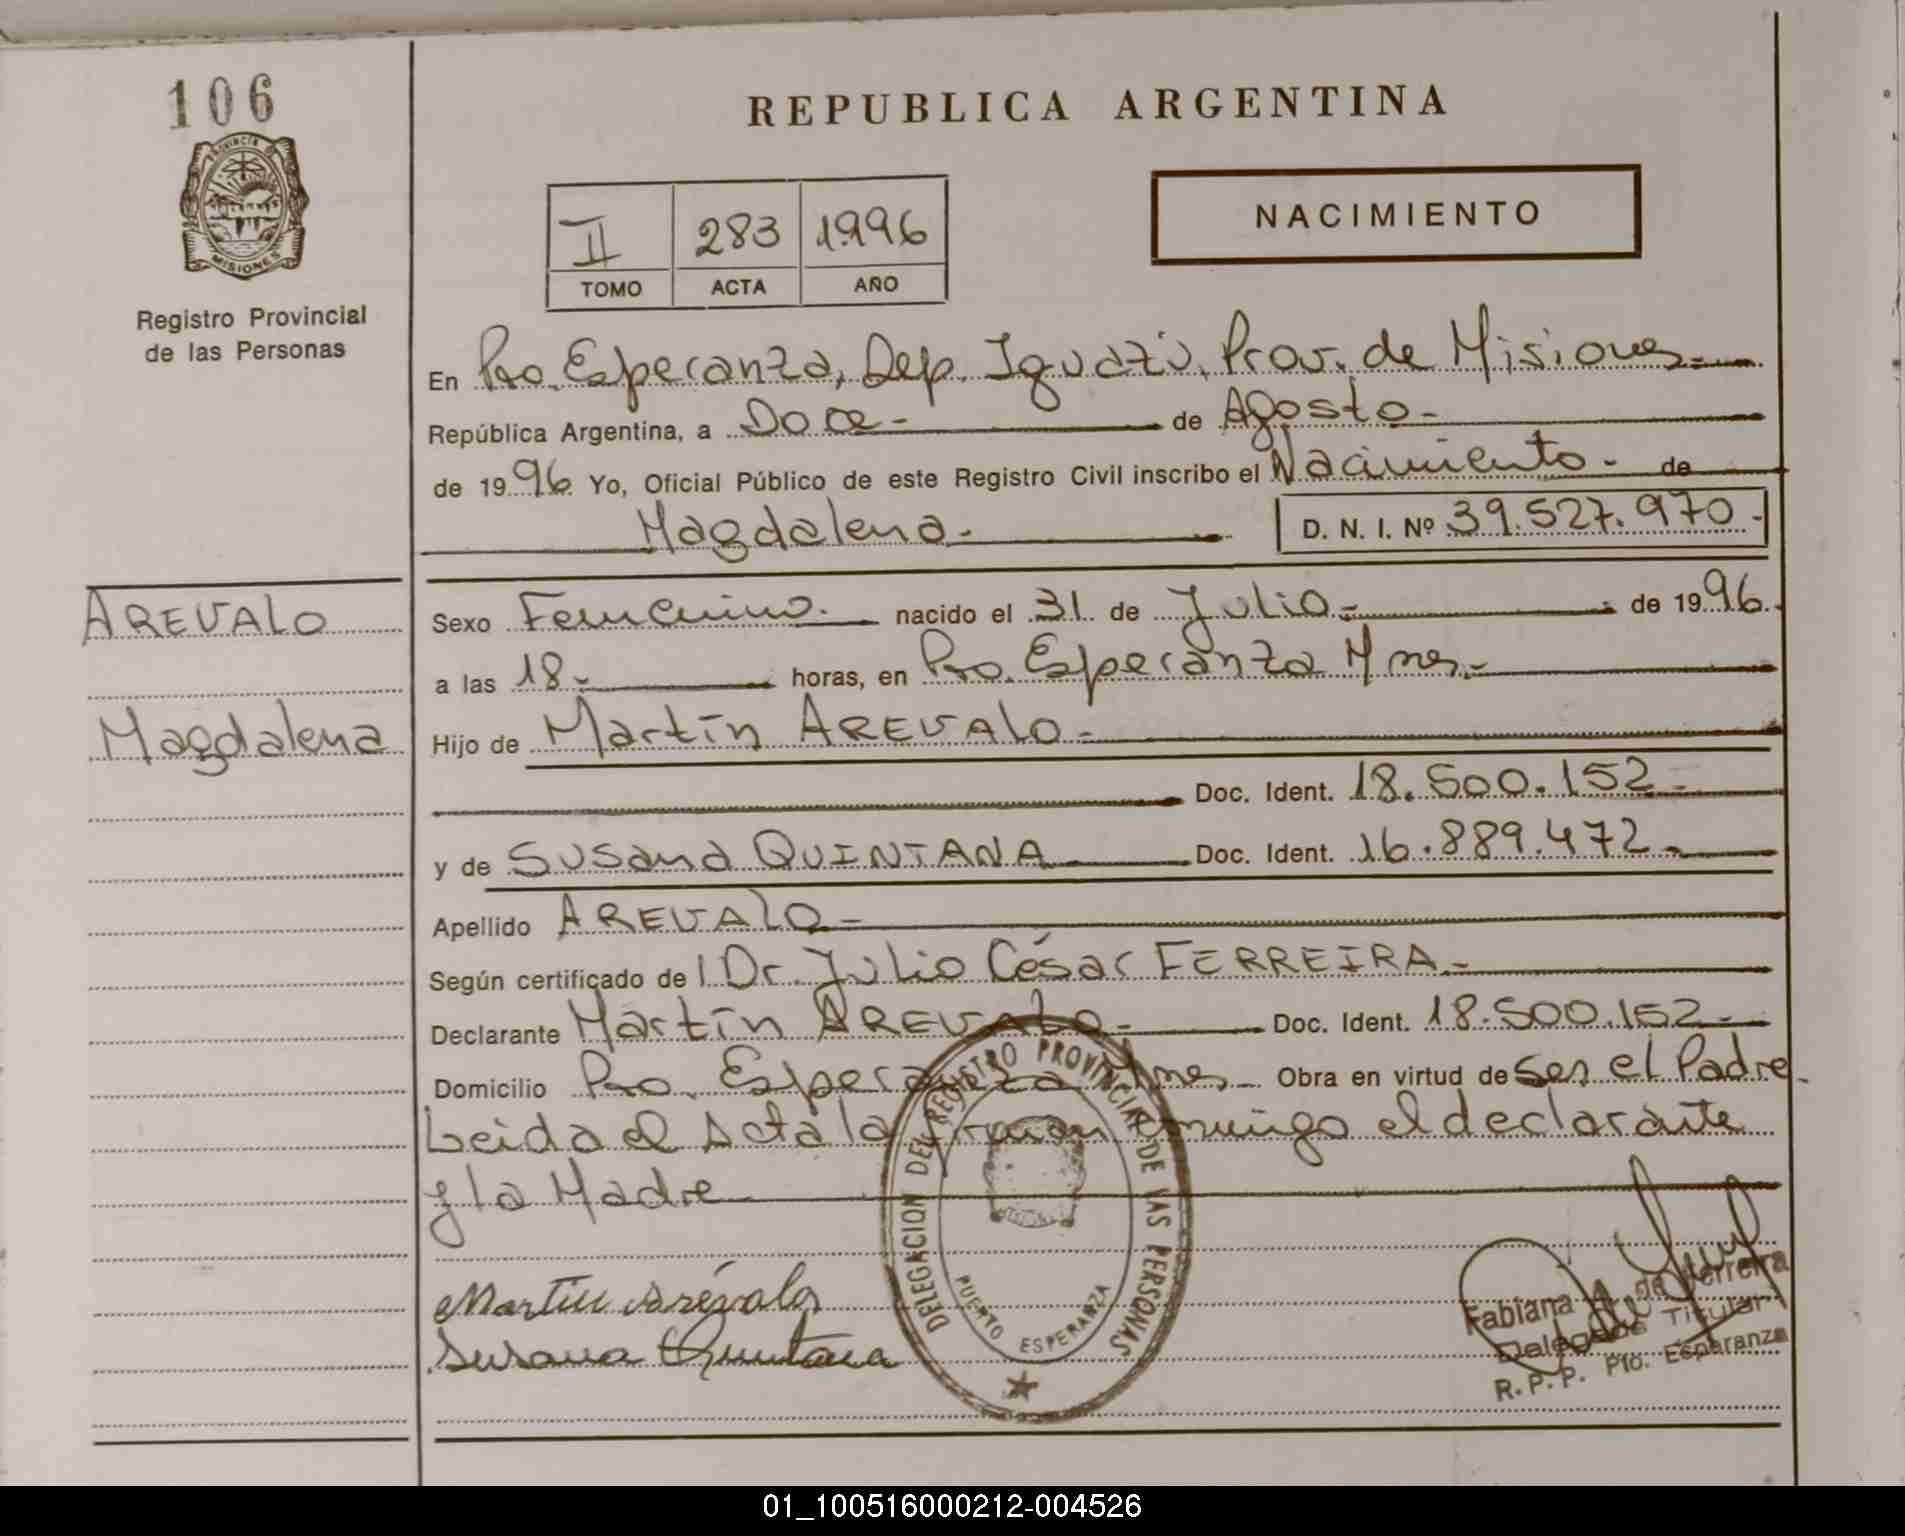 106
PROVINCIA DE
MISIONES
Registro Provincial
de las Personas
REPUBLICA ARGENTINA
II 283 1996
TOMO ACTA AÑO
NACIMIENTO
En Pto. Esperanza, Dep. Iguazú, Prov. de Misiones.-
República Argentina, a Doce.- de Agosto.-
de 1996. Yo, Oficial Público de este Registro Civil inscribo el Nacimiento.- de
Magdalena.- D. N. I. Nº 39.527.970.-
AREVALO
Magdalena
Sexo Femenino.- nacido el 31. de Julio.- de 1996.
a las 18.- horas, en Pto. Esperanza Mnes.-
Hijo de Martín AREVALO.-
Doc. Ident. 18.500.152.-
y de Susana QUINTANA Doc. Ident. 16.889.472.-
Apellido AREVALO.-
Según certificado de l Dr. Julio César FERREIRA.-
Declarante Martín AREVALO.- Doc. Ident. 18.500.152.-
Domicilio Pto. Esperanza Mnes Obra en virtud de Ser el Padre.
Leida el Acta la firman conmigo el declarante
y la Madre
DELEGACION DEL REGISTRO PROVINCIAL DE LAS PERSONAS
PUERTO ESPERANZA
Martin Arévalo
Susana Quintana
Fabiana de Ferreira
Delegada Titular
R.P.P. Pto. Esperanza
01_100516000212-004526